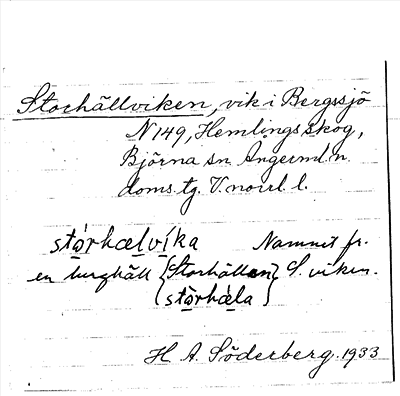 Storhällviken, vik i Bergssjö
N149, Hemlings skog,
Björna sn Ångerml. n.
doms. tg. V. norrl. l.
stòrhælvíka Namnet fr.
en berghäll {Storhällen} S. viken.
(stòrhæla)
H. A. Söderberg. 1933